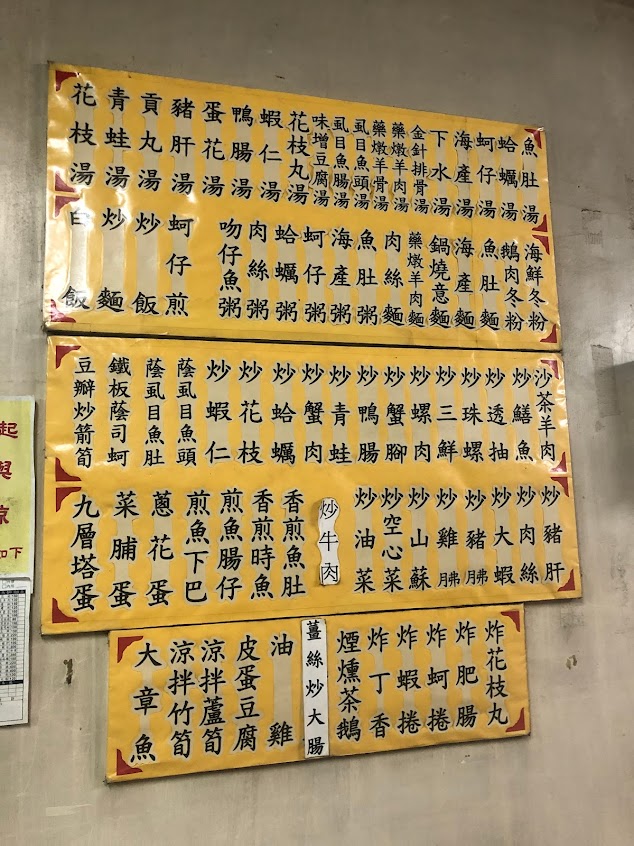 魚肚湯
蛤蠣湯
蚵仔湯
海產湯
下水湯
金針排骨湯
藥燉羊肉湯
藥燉羊骨湯
虱目魚頭湯
虱目魚腸湯
味增豆腐湯
花枝丸湯
蝦仁湯
鴨腸湯
蛋花湯
豬肝湯
貢丸湯
青蛙湯
花枝湯
海鮮冬粉
鵝肉冬粉
魚肚麵
海產麵
鍋燒意麵
藥燉羊肉麵
肉絲麵
魚肚粥
海產粥
蚵仔粥
蛤蠣粥
肉絲粥
吻仔魚粥
蚵仔煎
炒飯
炒麵
白飯
沙茶羊肉
炒鱔魚
炒透抽
炒珠螺
炒三鮮
炒螺肉
炒蟹腳
炒鴨腸
炒青蛙
炒蟹肉
炒蛤蠣
炒花枝
炒蝦仁
蔭虱目魚頭
蔭虱目魚肚
鐵板蔭司蚵
豆瓣炒箭筍
炒豬肝
炒肉絲
炒大蝦
炒豬胇
炒雞胇
炒山蘇
炒空心菜
炒油菜
炒牛肉
香煎魚肚
香煎時魚
煎魚腸仔
煎魚下巴
蔥花蛋
菜脯蛋
九層塔蛋
炸花枝丸
炸肥腸
炸蚵捲
炸蝦捲
炸丁香
煙燻茶鵝
薑絲炒大腸
油雞
皮蛋豆腐
涼拌蘆筍
涼拌竹筍
大章魚
起
與
如下